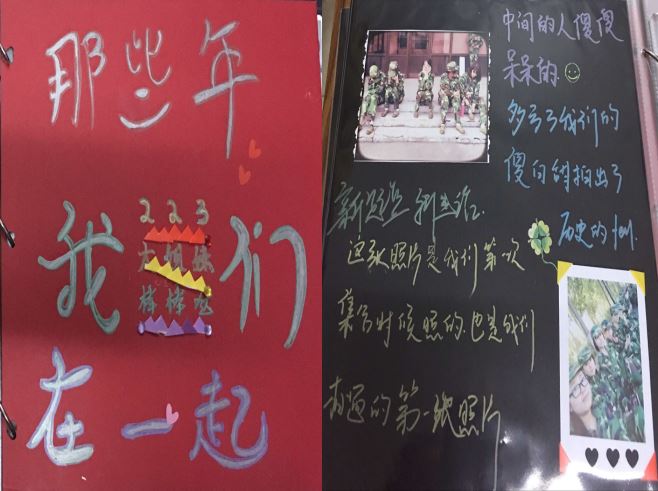 那些年
我们
223
姐妹
棒棒
在一起
中间的人傻傻
呆呆的
多亏了我们的
傻白拍出了
历史的
新起点 新生活.
这张照片是我们第一次
集合时候照的也是我们
的第一张照片